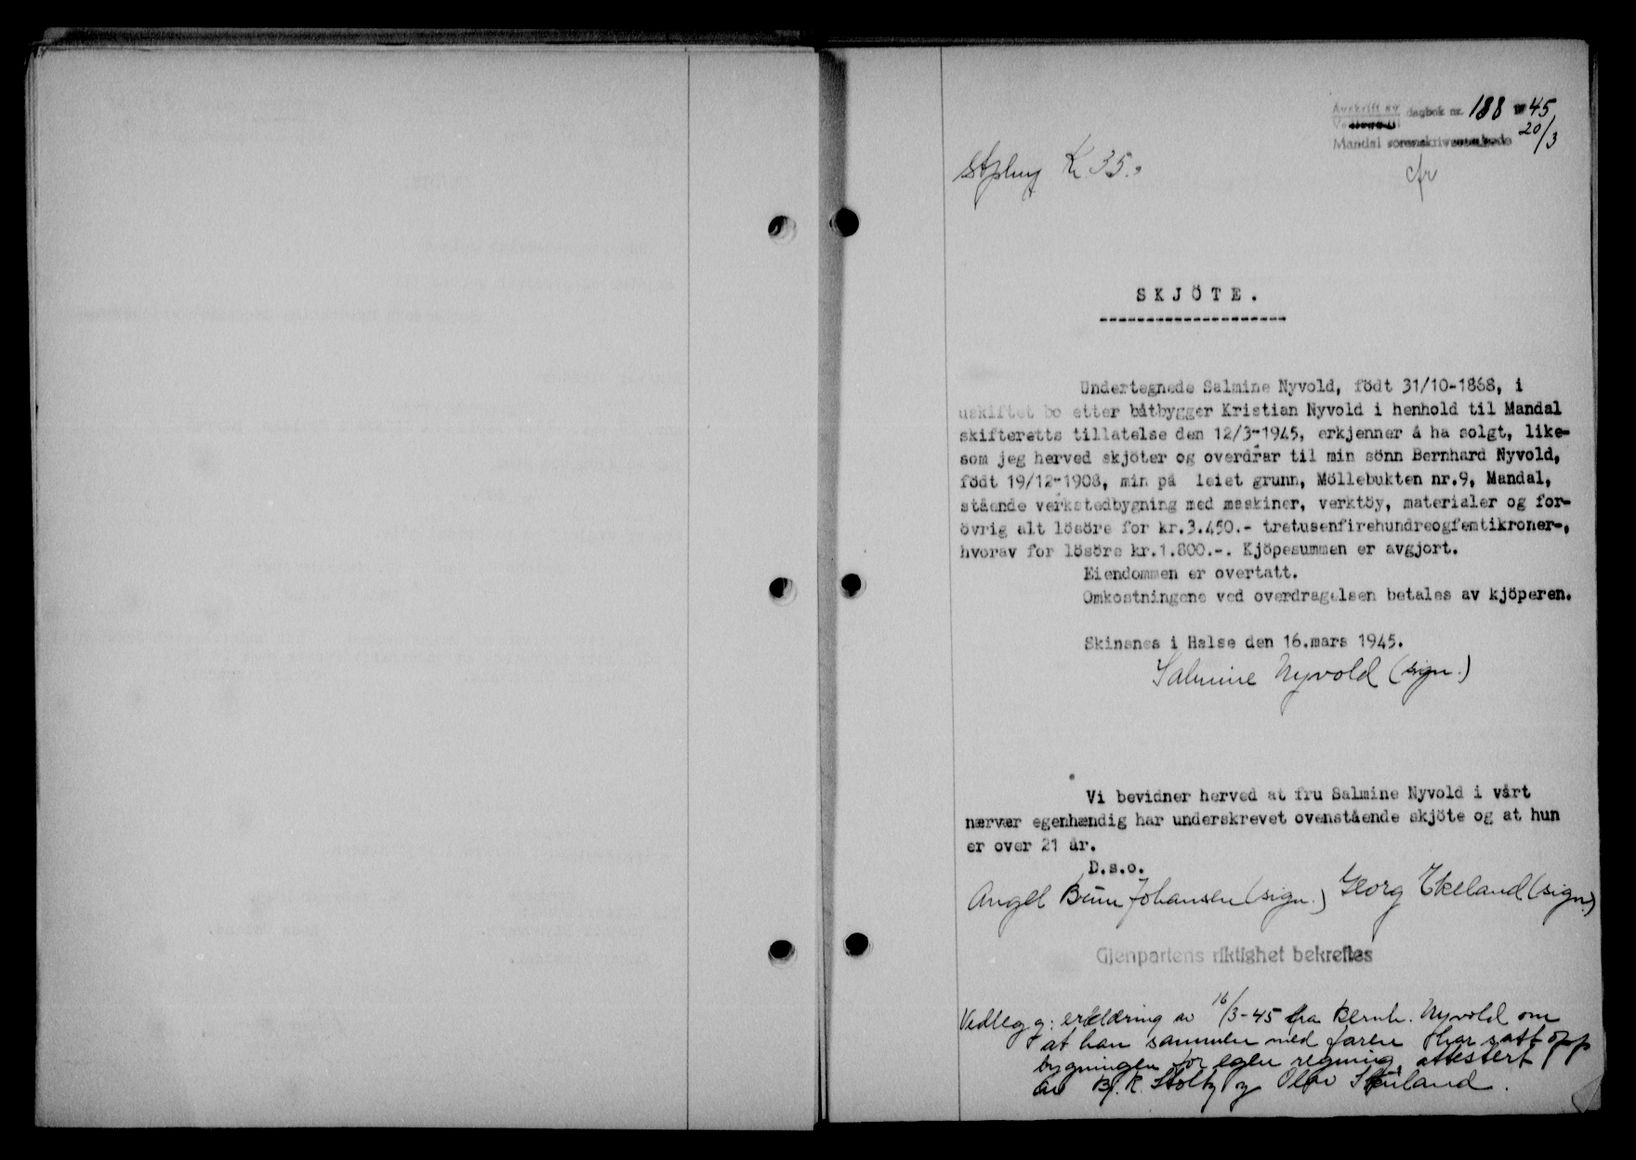 Avskrift av dagbok nr. 188 1945
20/3
Mandal sorenskriverembede
Stpl.avg Kr. 35.-
SKJÖTE.
Undertegnede Salmine Nyvold, födt 31/10-1868, i
uskiftet bo etter båtbygger Kristian Nyvold i henhold til Mandal
skifteretts tillatelse den 12/3-1945, erkjenner å ha solgt, like-
som jeg herved skjöter og overdrar til min sönn Bernhard Nyvold,
födt 19/12-1908, min på leiet grunn, Möllebukten nr.9, Mandal,
stående verkstedbygning med maskiner, verktöy, materialer og for-
övrig alt lösöre for kr.3.450.- tretusenfirehundreogfemtikroner-,
hvorav for lösöre kr.1.800.-. Kjöpesummen er avgjort.
Eiendommen er overtatt.
Omkostningene ved overdragelsen betales av kjöperen.
Skinsnes i Halse den 16.mars 1945.
Salmine Nyvold (sign.)
Vi bevidner herved at fru Salmine Nyvold i vårt
nærvær egenhændig har underskrevet ovenstående skjöte og at hun
er over 21 år.
D.s.o.
Angel Bruun Johansen (sign.) Georg Ekeland (sign.)
Gjenpartens riktighet bekreftes
Vedlegg: erklæring av 16/3-45 fra Bernh. Nyvold om
at han sammen med faren har satt opp
bygningen for egen regning attestert
av B. K. Stoltz og Olav